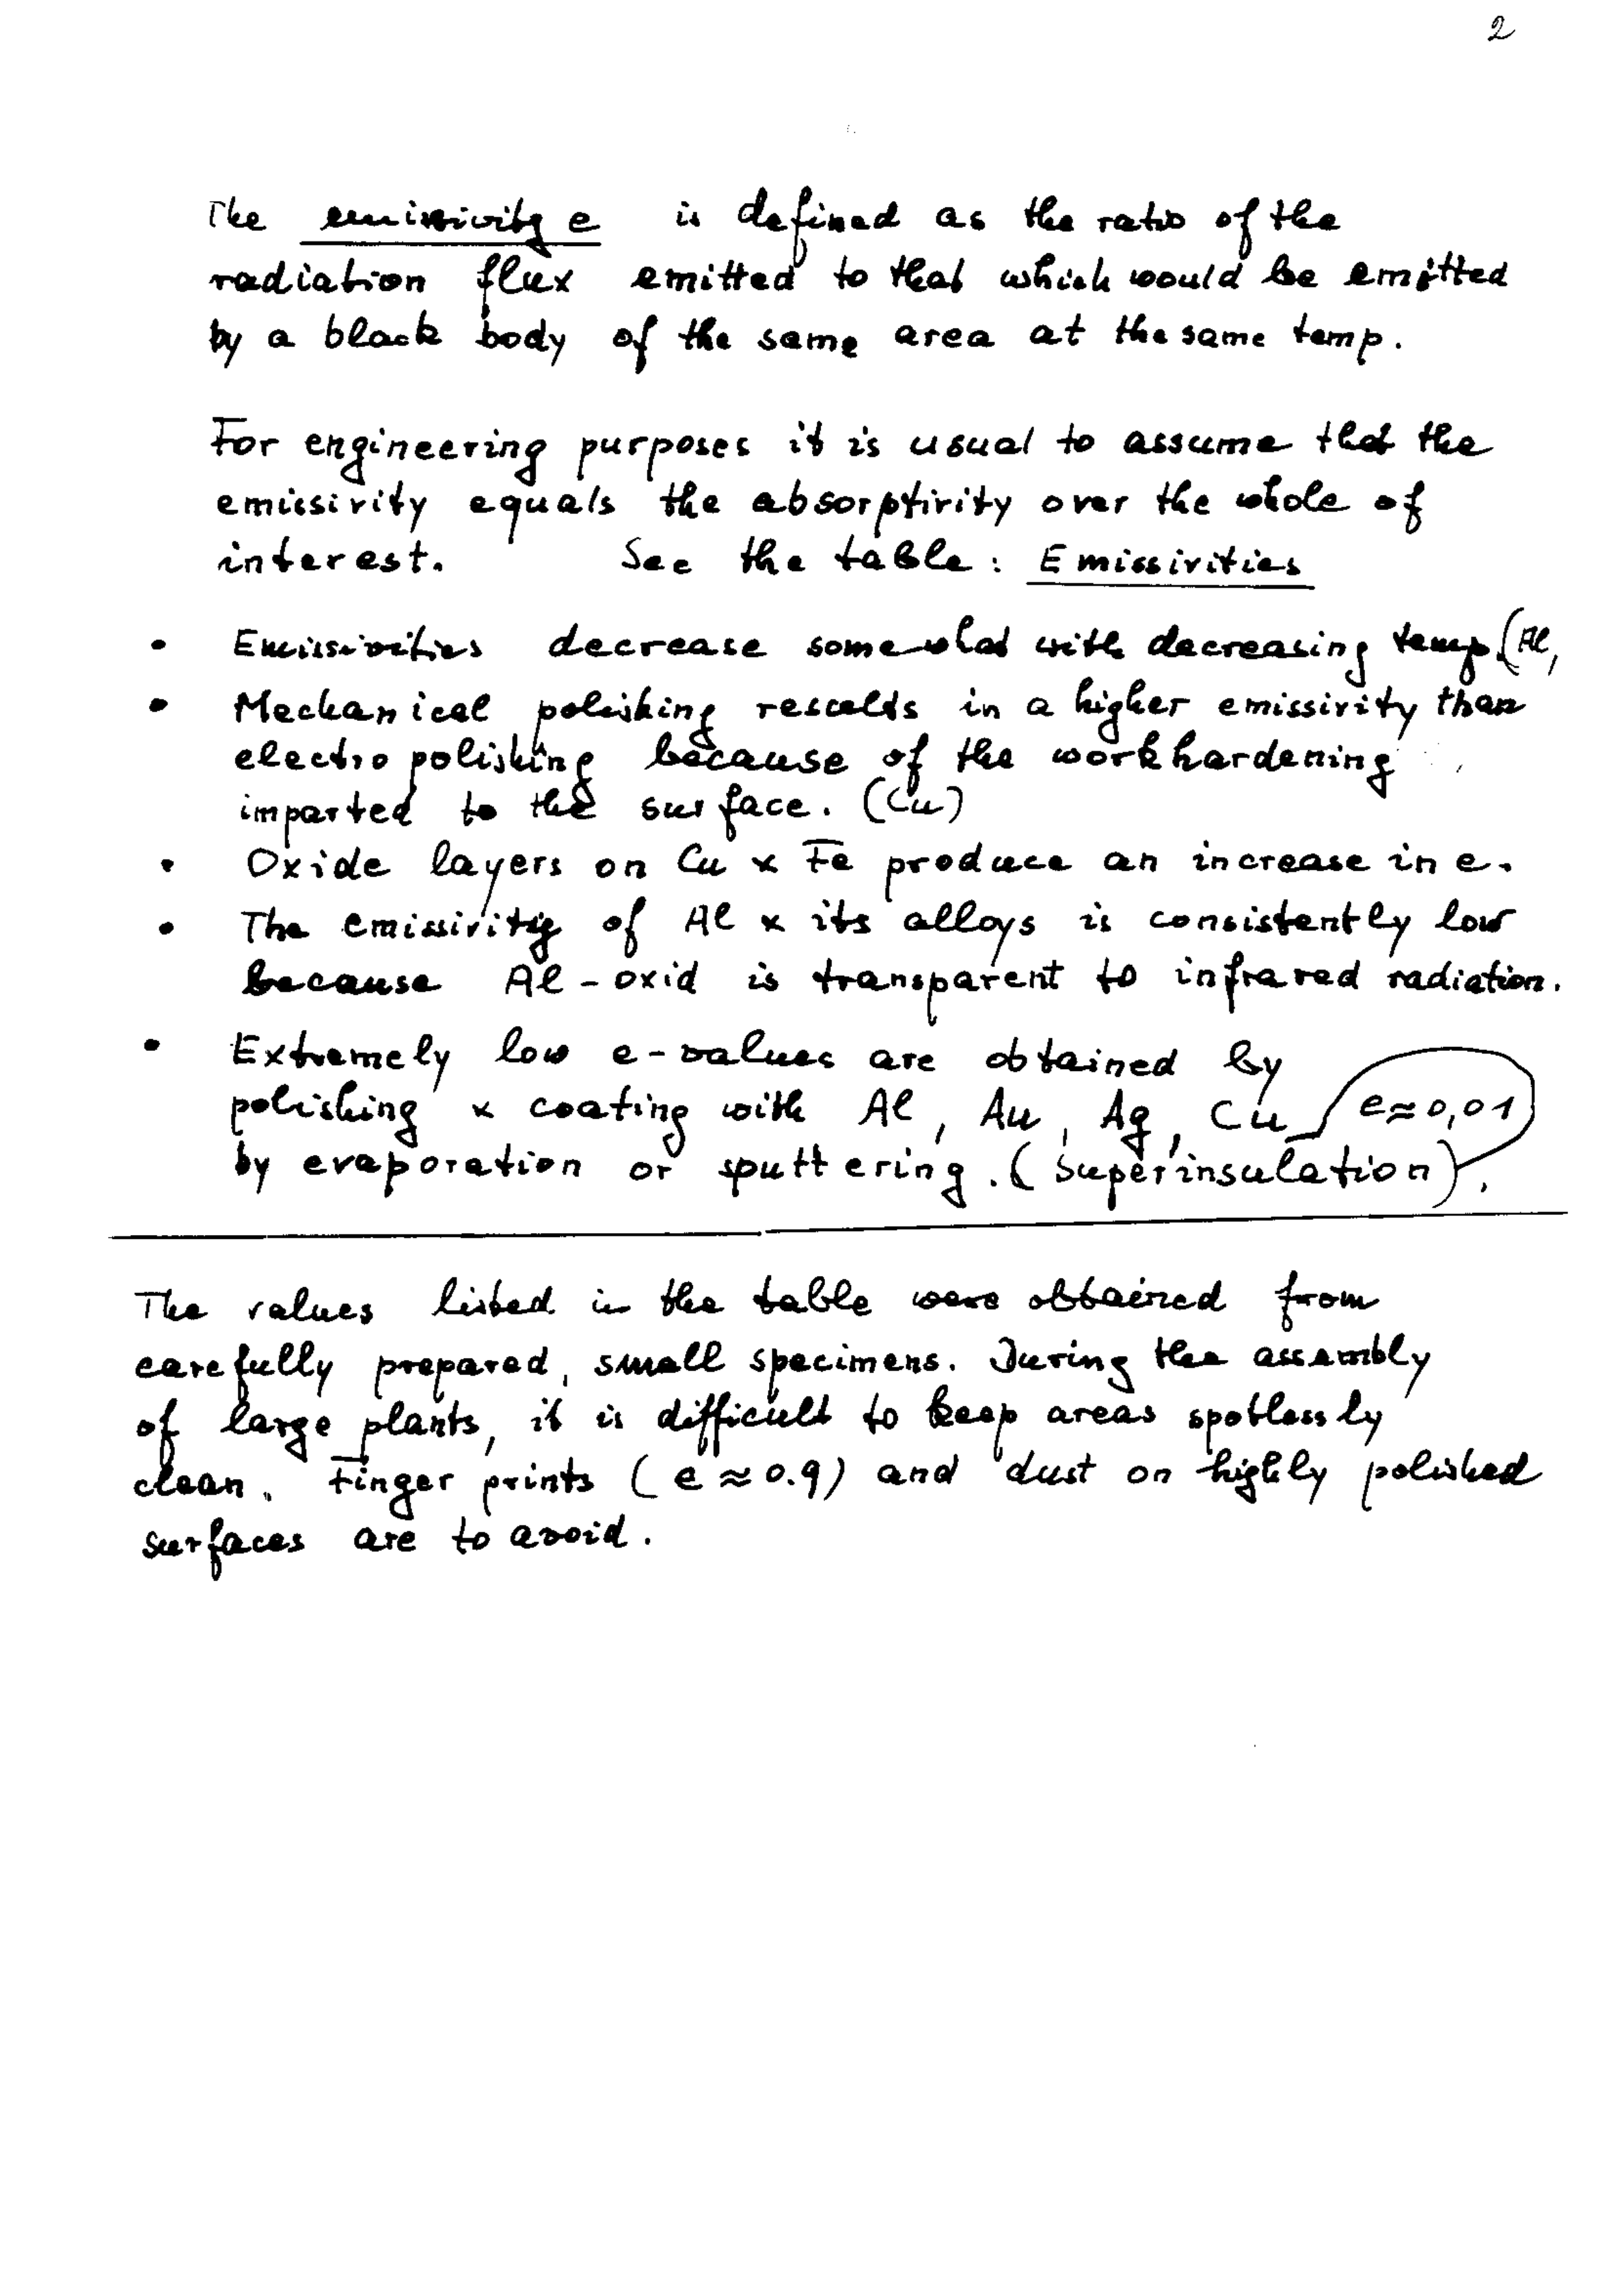 2
The emissivity e is defined as the ratio of the
radiation flux emitted to that which would be emitted
by a black body of the same area at the same temp.
For engineering purposes it is usual to assume that the
emissivity equals the absorptivity over the whole of
interest. See the table: Emissivities
• Emissivities decrease somewhat with decreasing temp. (Al,
• Mechanical polishing results in a higher emissivity than
electro polishing because of the workhardening
imparted to the surface. (Cu)
• Oxide layers on Cu & Fe produce an increase in e.
• The emissivity of Al & its alloys is consistently low
because Al-oxid is transparent to infrared radiation.
• Extremely low e-values are obtained by
polishing & coating with Al, Au, Ag, Cu e≈0,01
by evaporation or sputtering. (Superinsulation).
The values listed in the table were obtained from
carefully prepared, small specimens. During the assembly
of large plants, it is difficult to keep areas spotlessly
clean. Finger prints (e≈0.9) and dust on highly polished
surfaces are to avoid.